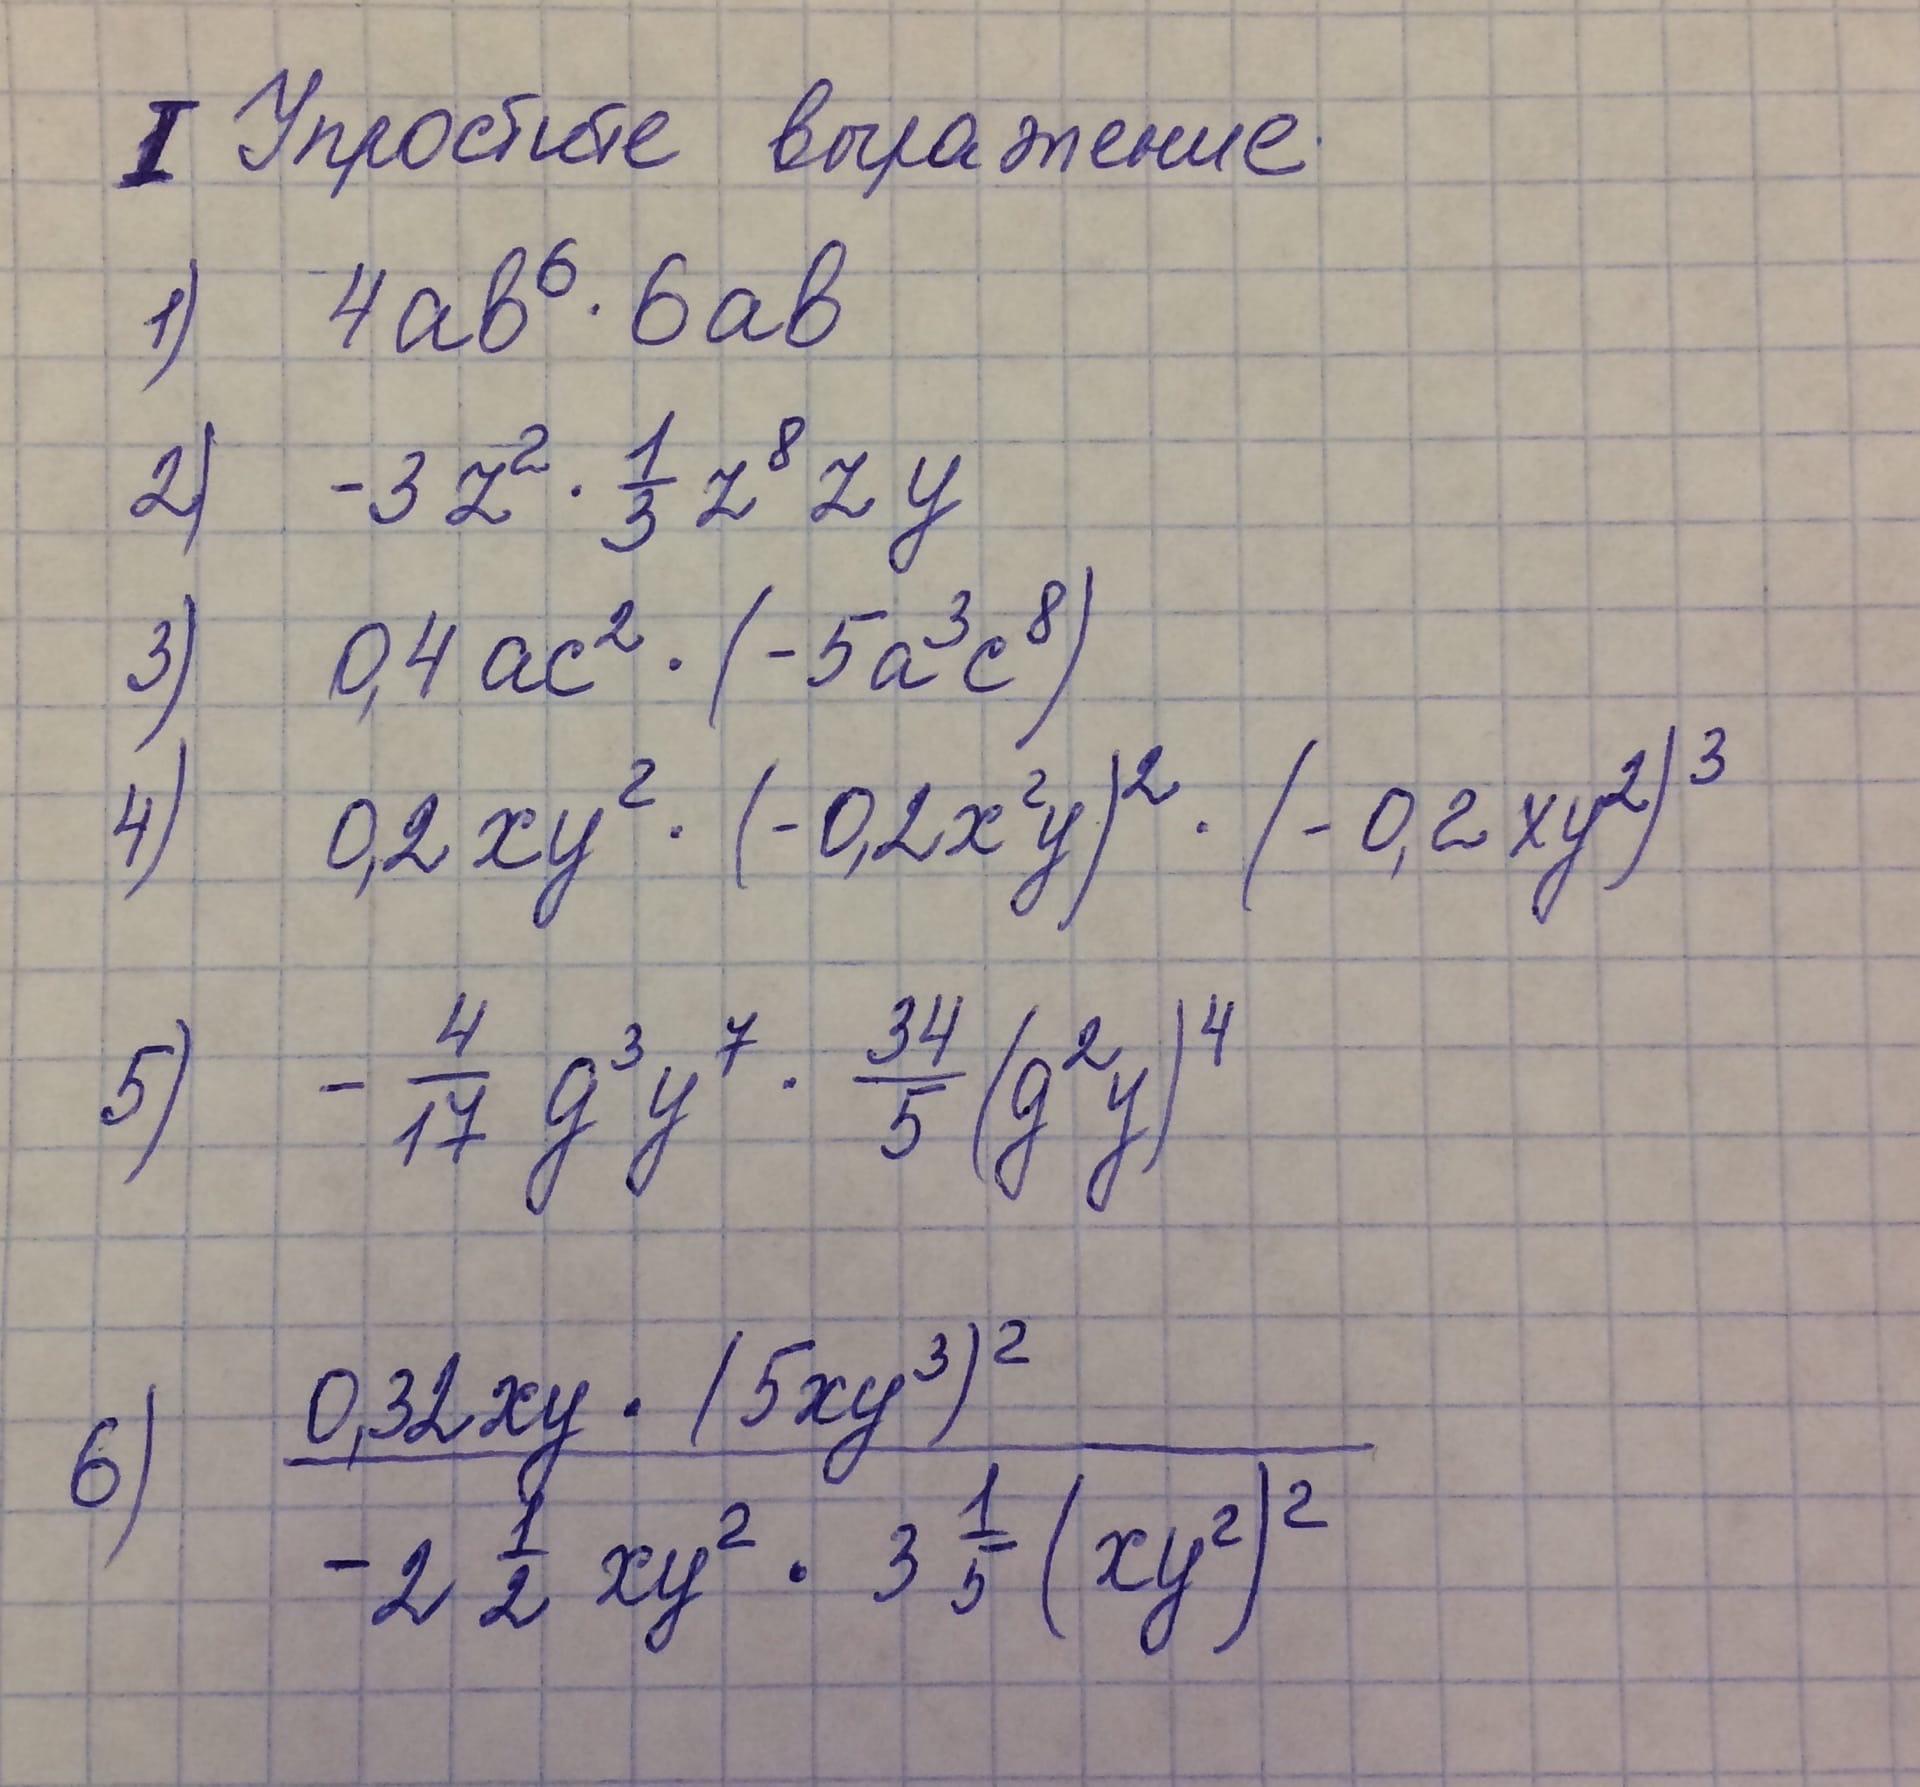 I Упростите выражение.
1) 4ab⁶ · 6ab
2) -3z² · 1/3 z⁸ z y
3) 0,4ac² · (-5a³c⁸)
4) 0,2xy² · (-0,2x²y)² · (-0,2xy²)³
5) - 4/17 g³y⁷ · 34/5 (g²y)⁴
6) 0,32xy · (5xy³)²
-2 1/2 xy² · 3 1/5 (xy²)²